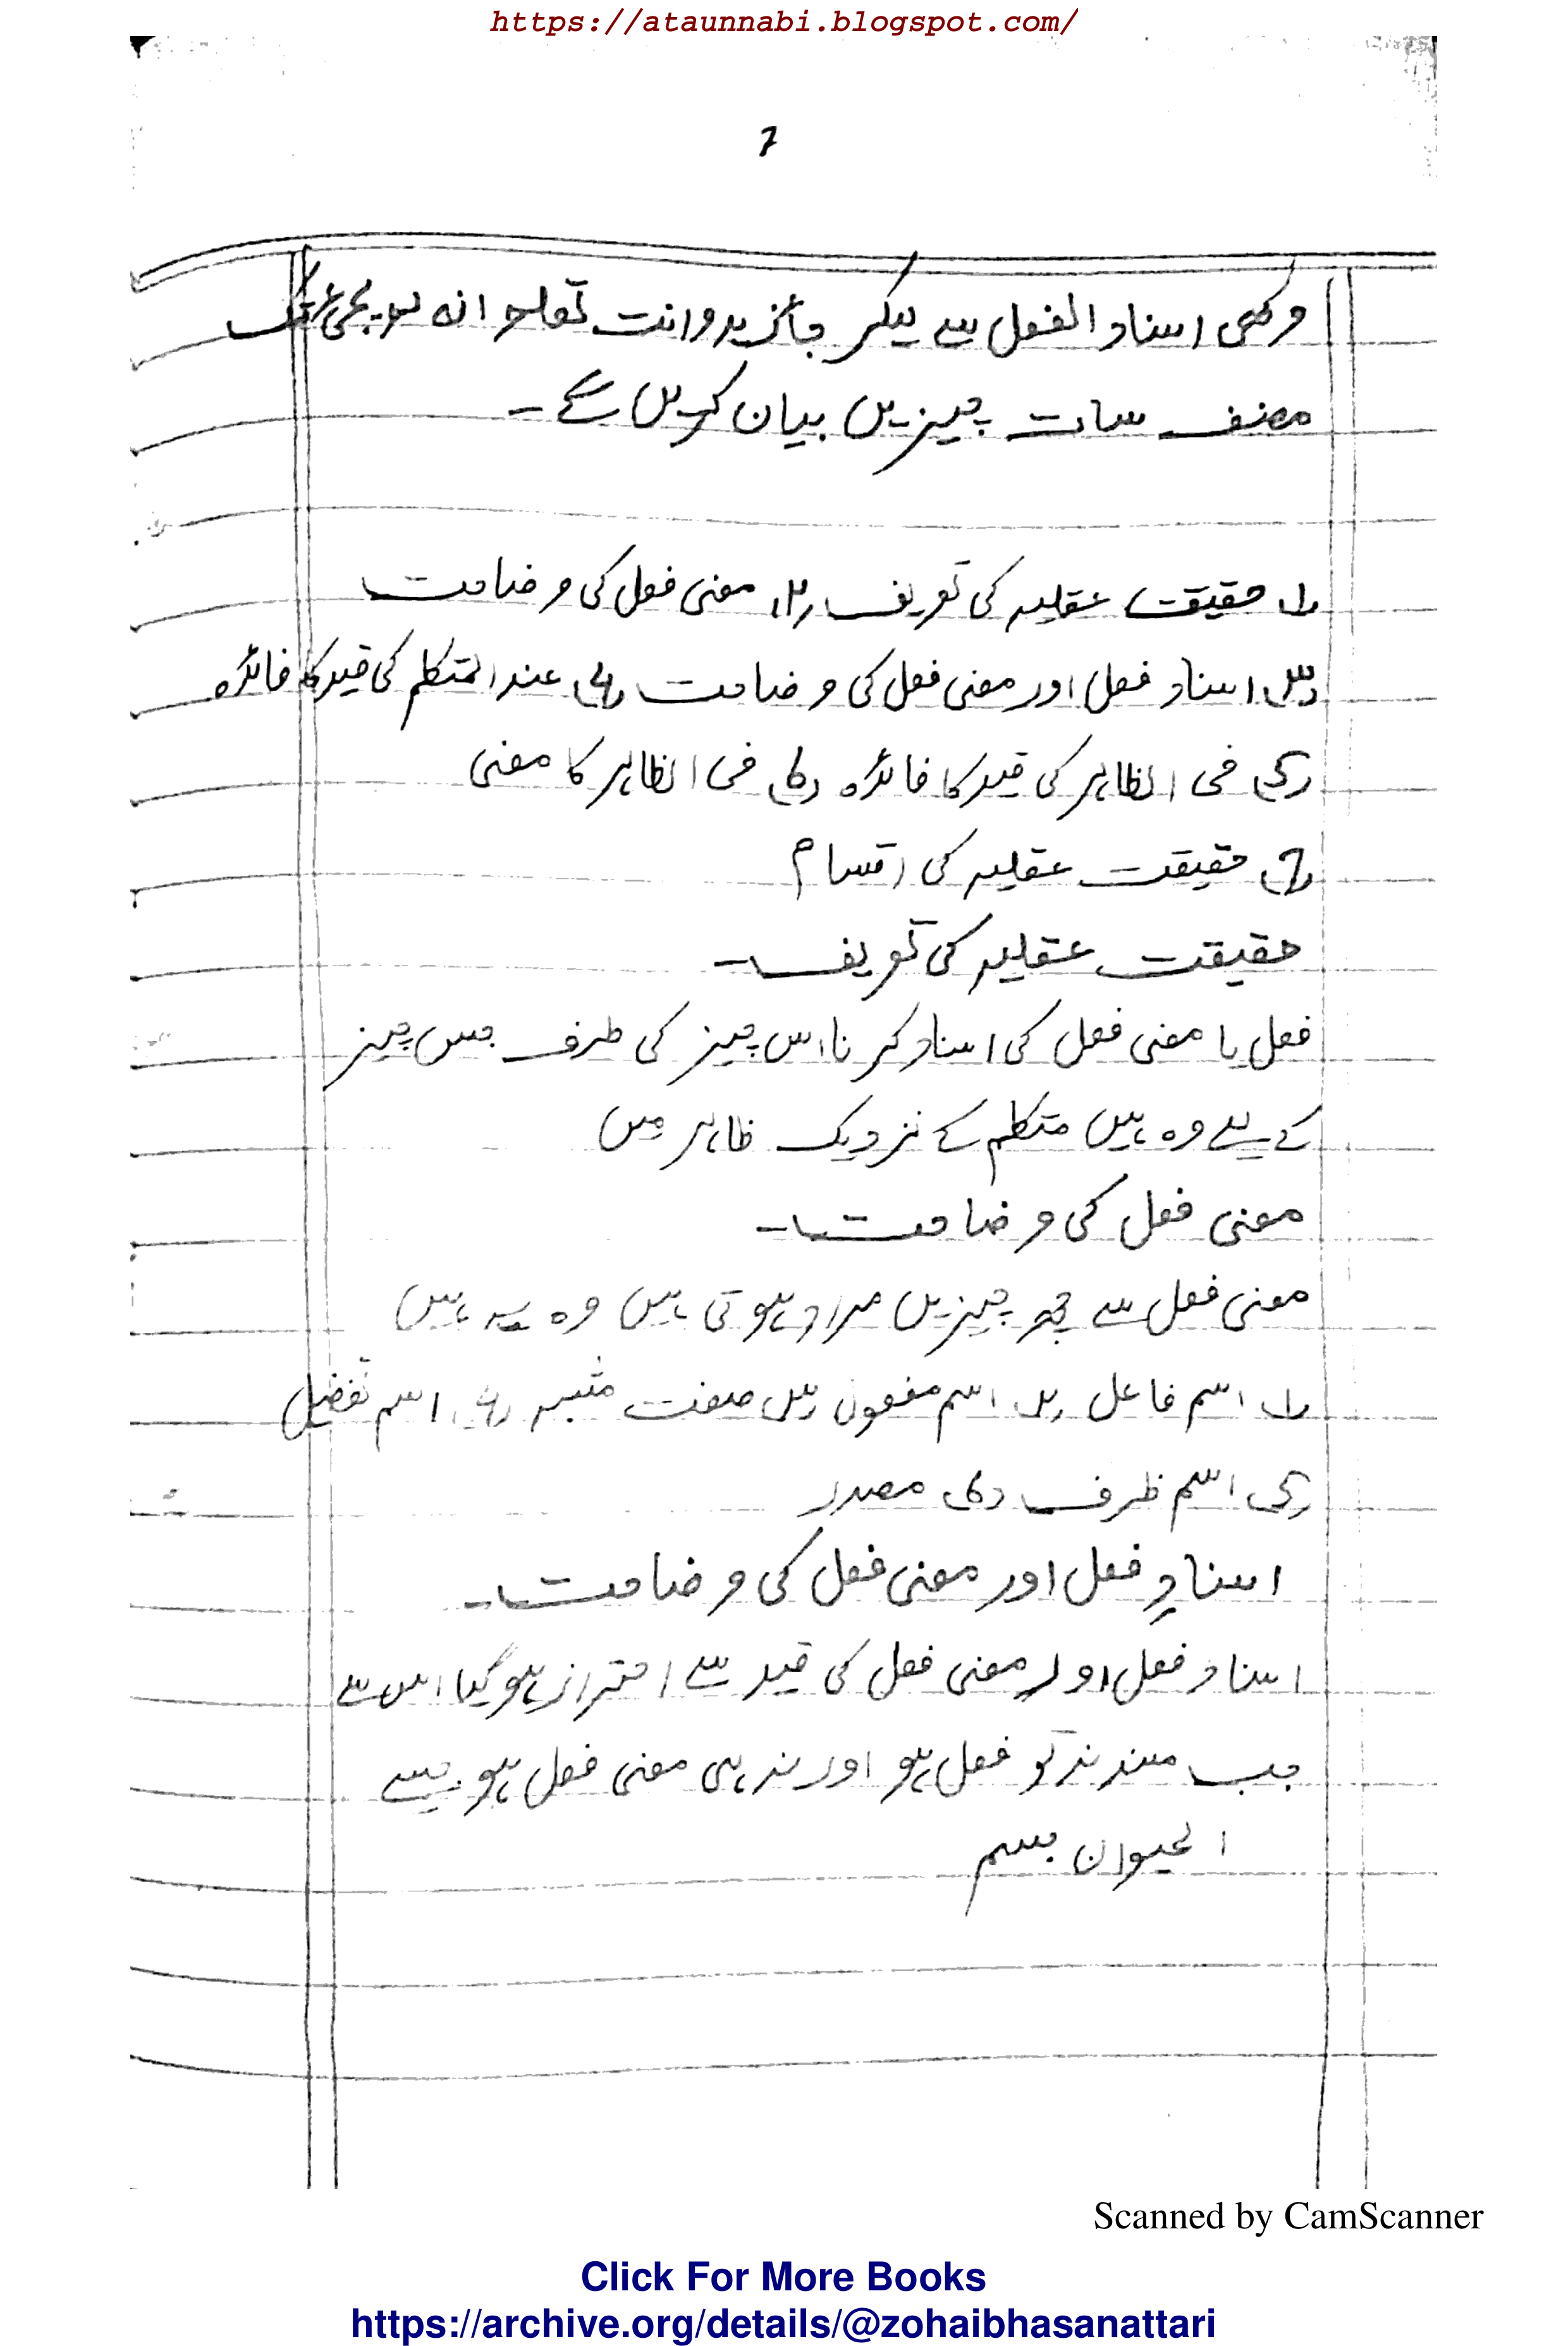 https://ataunnabi.blogspot.com/
7
وھی اسناد الفعل سے لیکر جاء زید وانت تعلم انہ لم یجئ تک
مصنف سات چیزیں بیان کریں گے ۔
(۱) حقیقت عقلیہ کی تعریف (۲) معنی فعل کی وضاحت
(۳) اسناد فعل اور معنی فعل کی وضاحت (۴) عند المتکلم کی قید کا فائدہ
(۵) فی الظاہر کی قید کا فائدہ (۶) فی الظاہر کا معنی
(۷) حقیقت عقلیہ کی اقسام
حقیقت عقلیہ کی تعریف ۔
فعل یا معنی فعل کی اسناد کرنا اس چیز کی طرف جس چیز
کے لیے وہ ہیں متکلم کے نزدیک ظاہر میں
معنی فعل کی وضاحت ۔
معنی فعل سے چھ چیزیں مراد ہوتی ہیں وہ یہ ہیں
(۱) اسم فاعل (۲) اسم مفعول (۳) صفت مشبہ (۴) اسم تفضیل
(۵) اسم ظرف (۶) مصدر
اسنادِ فعل اور معنی فعل کی وضاحت ۔
اسناد فعل اور معنی فعل کی قید سے احتراز ہو گیا اس سے
جب مسند نہ تو فعل ہو اور نہ ہی معنی فعل ہو جیسے
الحیوان جسم
Scanned by CamScanner
Click For More Books
https://archive.org/details/@zohaibhasanattari